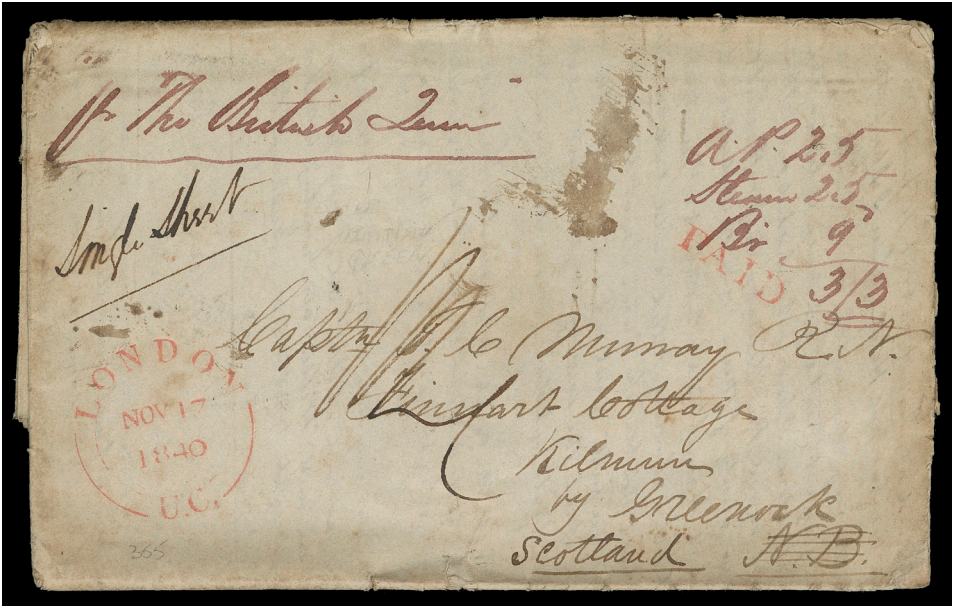 pr The British Queen
A.P. 2.5
Steam 2.5
Br 9
3/3
PAID
Single Sheet
LONDON
NOV 17
1840
U.C.
Captn J. C Murray R.N.
Finnart Cottage
Kilmun
by Greenock
Scotland N.B.
365